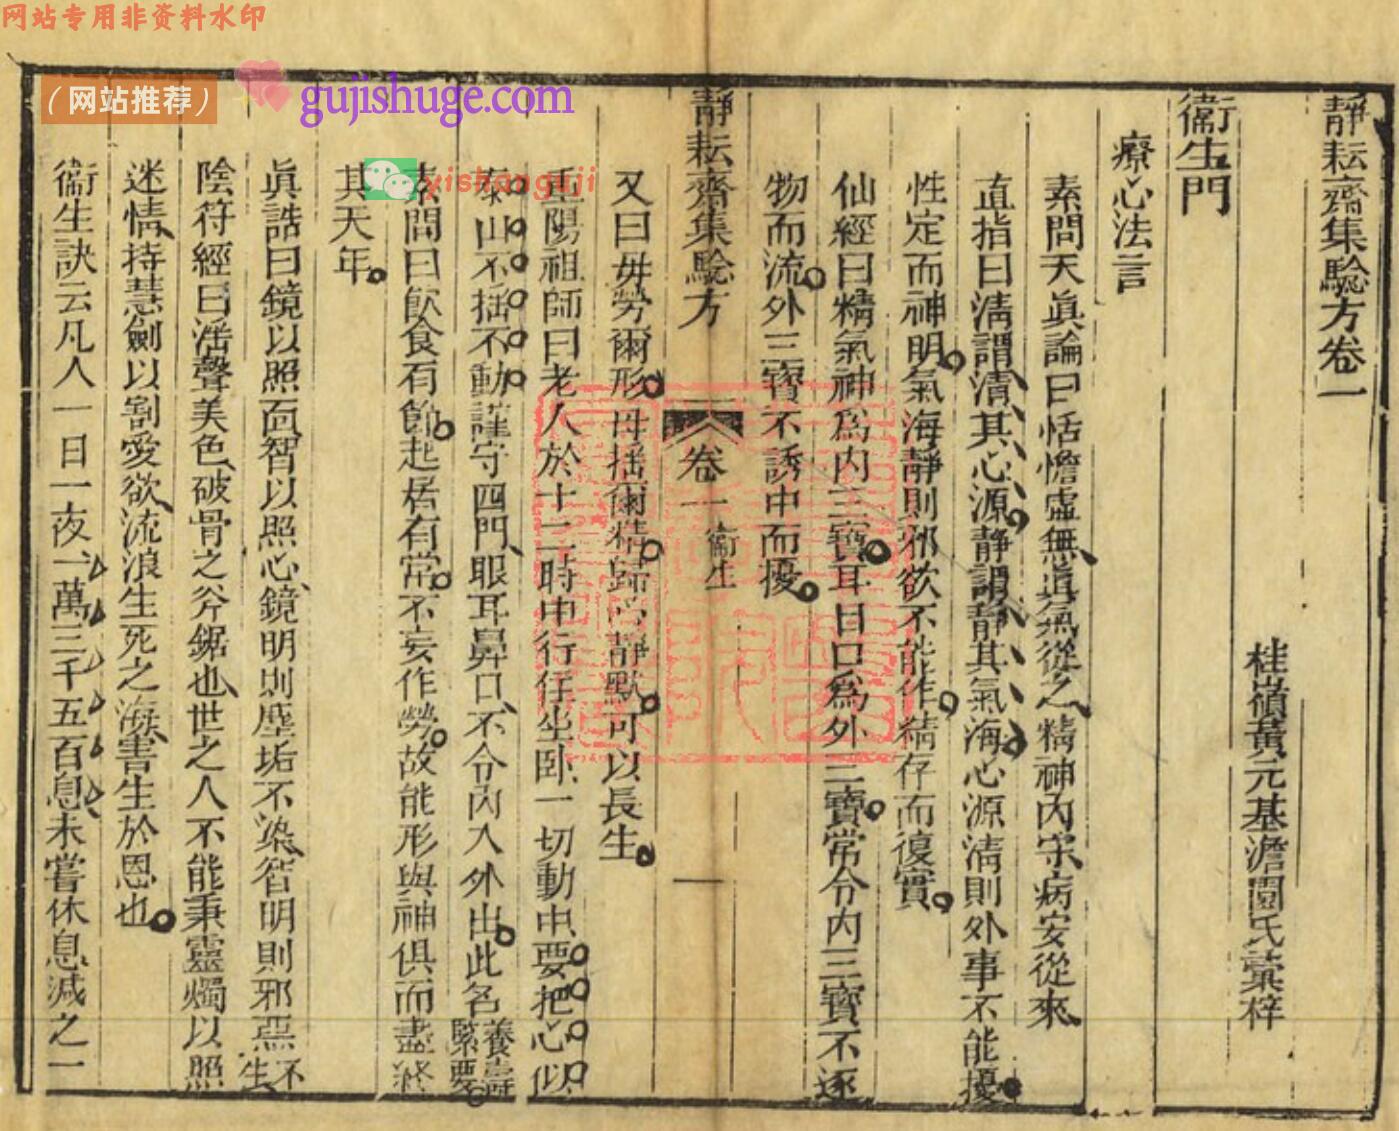 网站专用非资料水印
（网站推荐）
gujishuge.com
yishanguji
靜耘齋集驗方卷一
桂嶺黃元基澹園氏彙梓
衞生門
療心法言
素問天眞論曰恬憺虛無眞氣從之精神內守病安從來
直指曰淸謂淸其心源靜謂靜其氣海心源淸則外事不能擾
性定而神明氣海靜則邪欲不能作精存而復實
仙經曰精氣神爲內三寶耳目口爲外三寶常令內三寶不逐
物而流外三寶不誘中而擾
靜耘齋集驗方
卷一
衞生
一
又曰毋勞爾形毋揺爾精歸心靜默可以長生
重陽祖師曰老人於十二時中行住坐卧一切動中要把心似
泰山不揺不動謹守四門眼耳鼻口不令內入外出此名養壽緊要
素問曰飮食有節起居有常不妄作勞故能形與神俱而盡終
其天年
眞誥曰鏡以照面智以照心鏡明則塵垢不染智明則邪惡不生
陰符經曰淫聲美色破骨之斧鋸也世之人不能秉靈燭以照
迷情持慧劍以割愛欲流浪生死之海害生於恩也
衞生訣云凡人一日一夜一萬三千五百息未嘗休息減之一